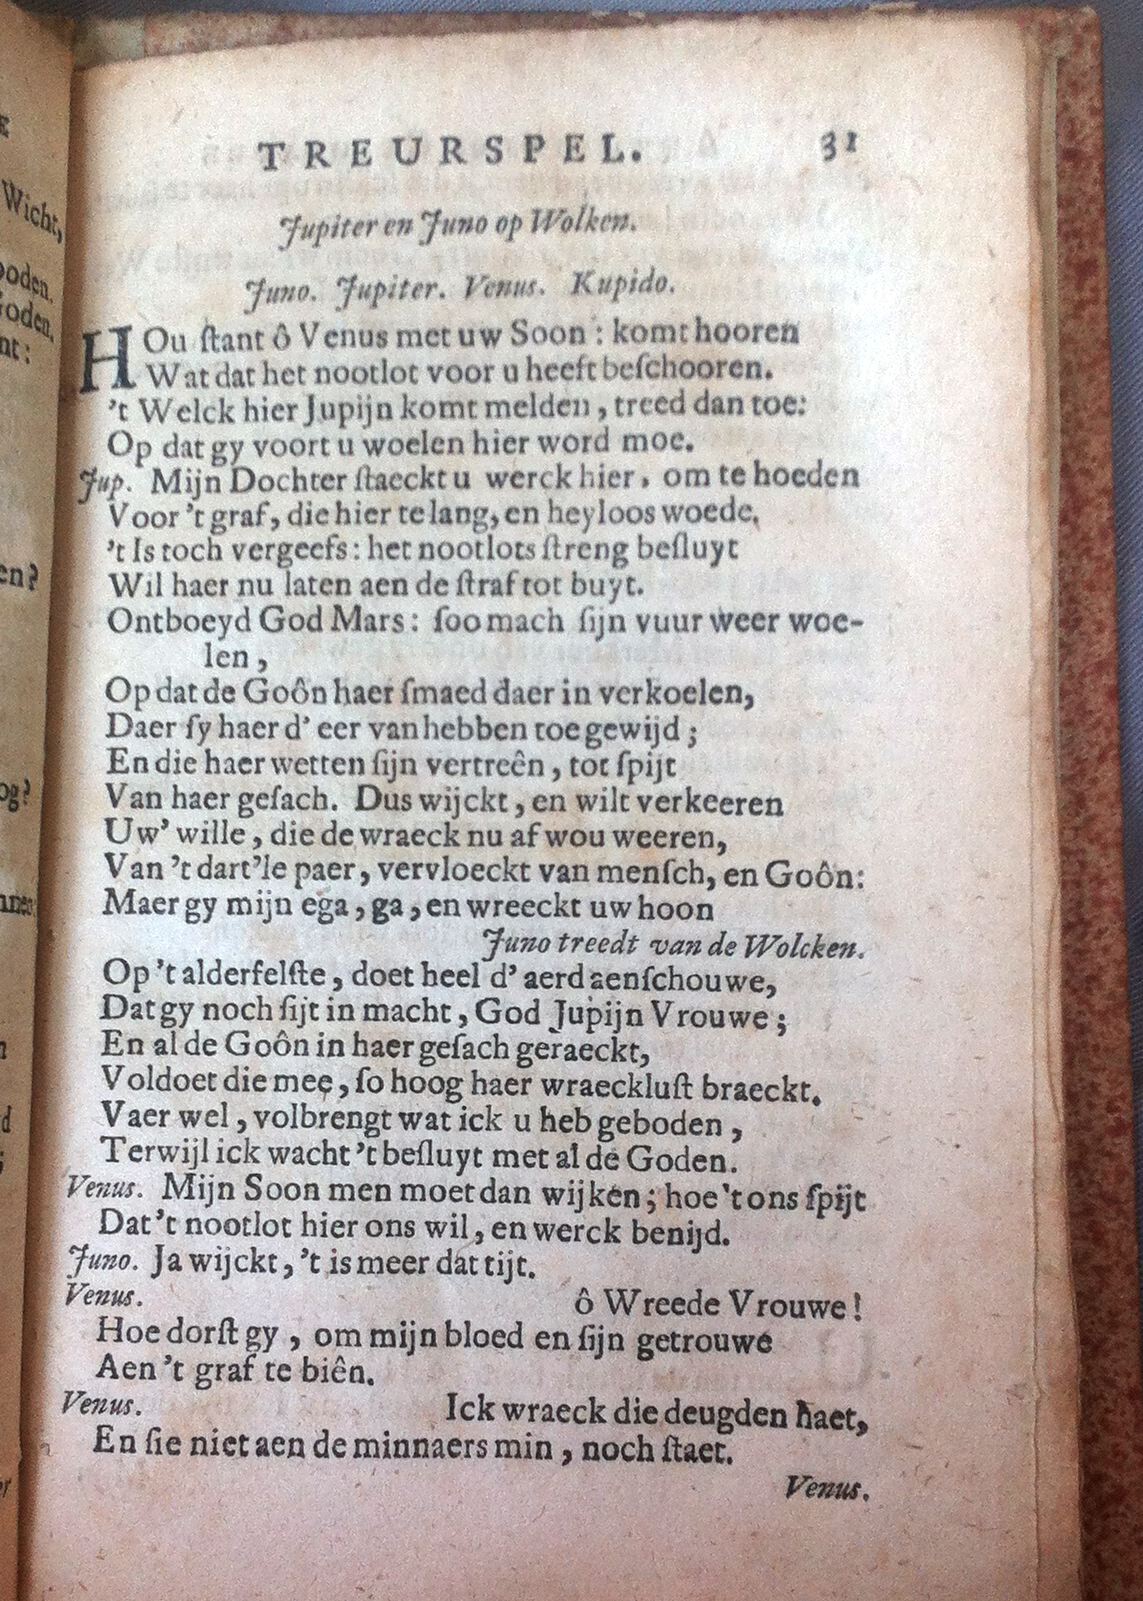 TREURSPEL. 31
Jupiter en Juno op Wolken.
Juno. Jupiter. Venus. Kupido.
HOu ſtant ô Venus met uw Soon : komt hooren
Wat dat het nootlot voor u heeft beſchooren.
't Welck hier Jupijn komt melden, treed dan toe:
Op dat gy voort u woelen hier word moe.
Jup. Mijn Dochter ſtaeckt u werck hier, om te hoeden
Voor 't graf, die hier te lang, en heyloos woede,
't Is toch vergeefs: het nootlots ſtreng beſluyt
Wil haer nu laten aen de ſtraf tot buyt.
Ontboeyd God Mars: ſoo mach ſijn vuur weer woe-
len,
Op dat de Goôn haer ſmaed daer in verkoelen,
Daer ſy haer d' eer van hebben toegewijd;
En die haer wetten ſijn vertreên, tot ſpijt
Van haer geſach. Dus wijckt, en wilt verkeeren
Uw' wille, die de wraeck nu af wou weeren,
Van 't dart'le paer, vervloeckt van menſch, en Goôn:
Maer gy mijn ega, ga, en wreeckt uw hoon
Juno treedt van de Wolcken.
Op 't alderfelſte, doet heel d' aerd aenſchouwe,
Dat gy noch ſijt in macht, God Jupijn Vrouwe;
En al de Goôn in haer geſach geraeckt,
Voldoet die mee, ſo hoog haer wraeckluſt braeckt.
Vaer wel, volbrengt wat ick u heb geboden,
Terwijl ick wacht 't beſluyt met al de Goden.
Venus. Mijn Soon men moet dan wijken; hoe 't ons ſpijt
Dat 't nootlot hier ons wil, en werck benijd.
Juno. Ja wijckt, 't is meer dat tijt.
Venus. ô Wreede Vrouwe!
Hoe dorſt gy, om mijn bloed en ſijn getrouwe
Aen 't graf te biên.
Venus. Ick wraeck die deugden haet,
En ſie niet aen de minnaers min, noch ſtaet.
Venus.